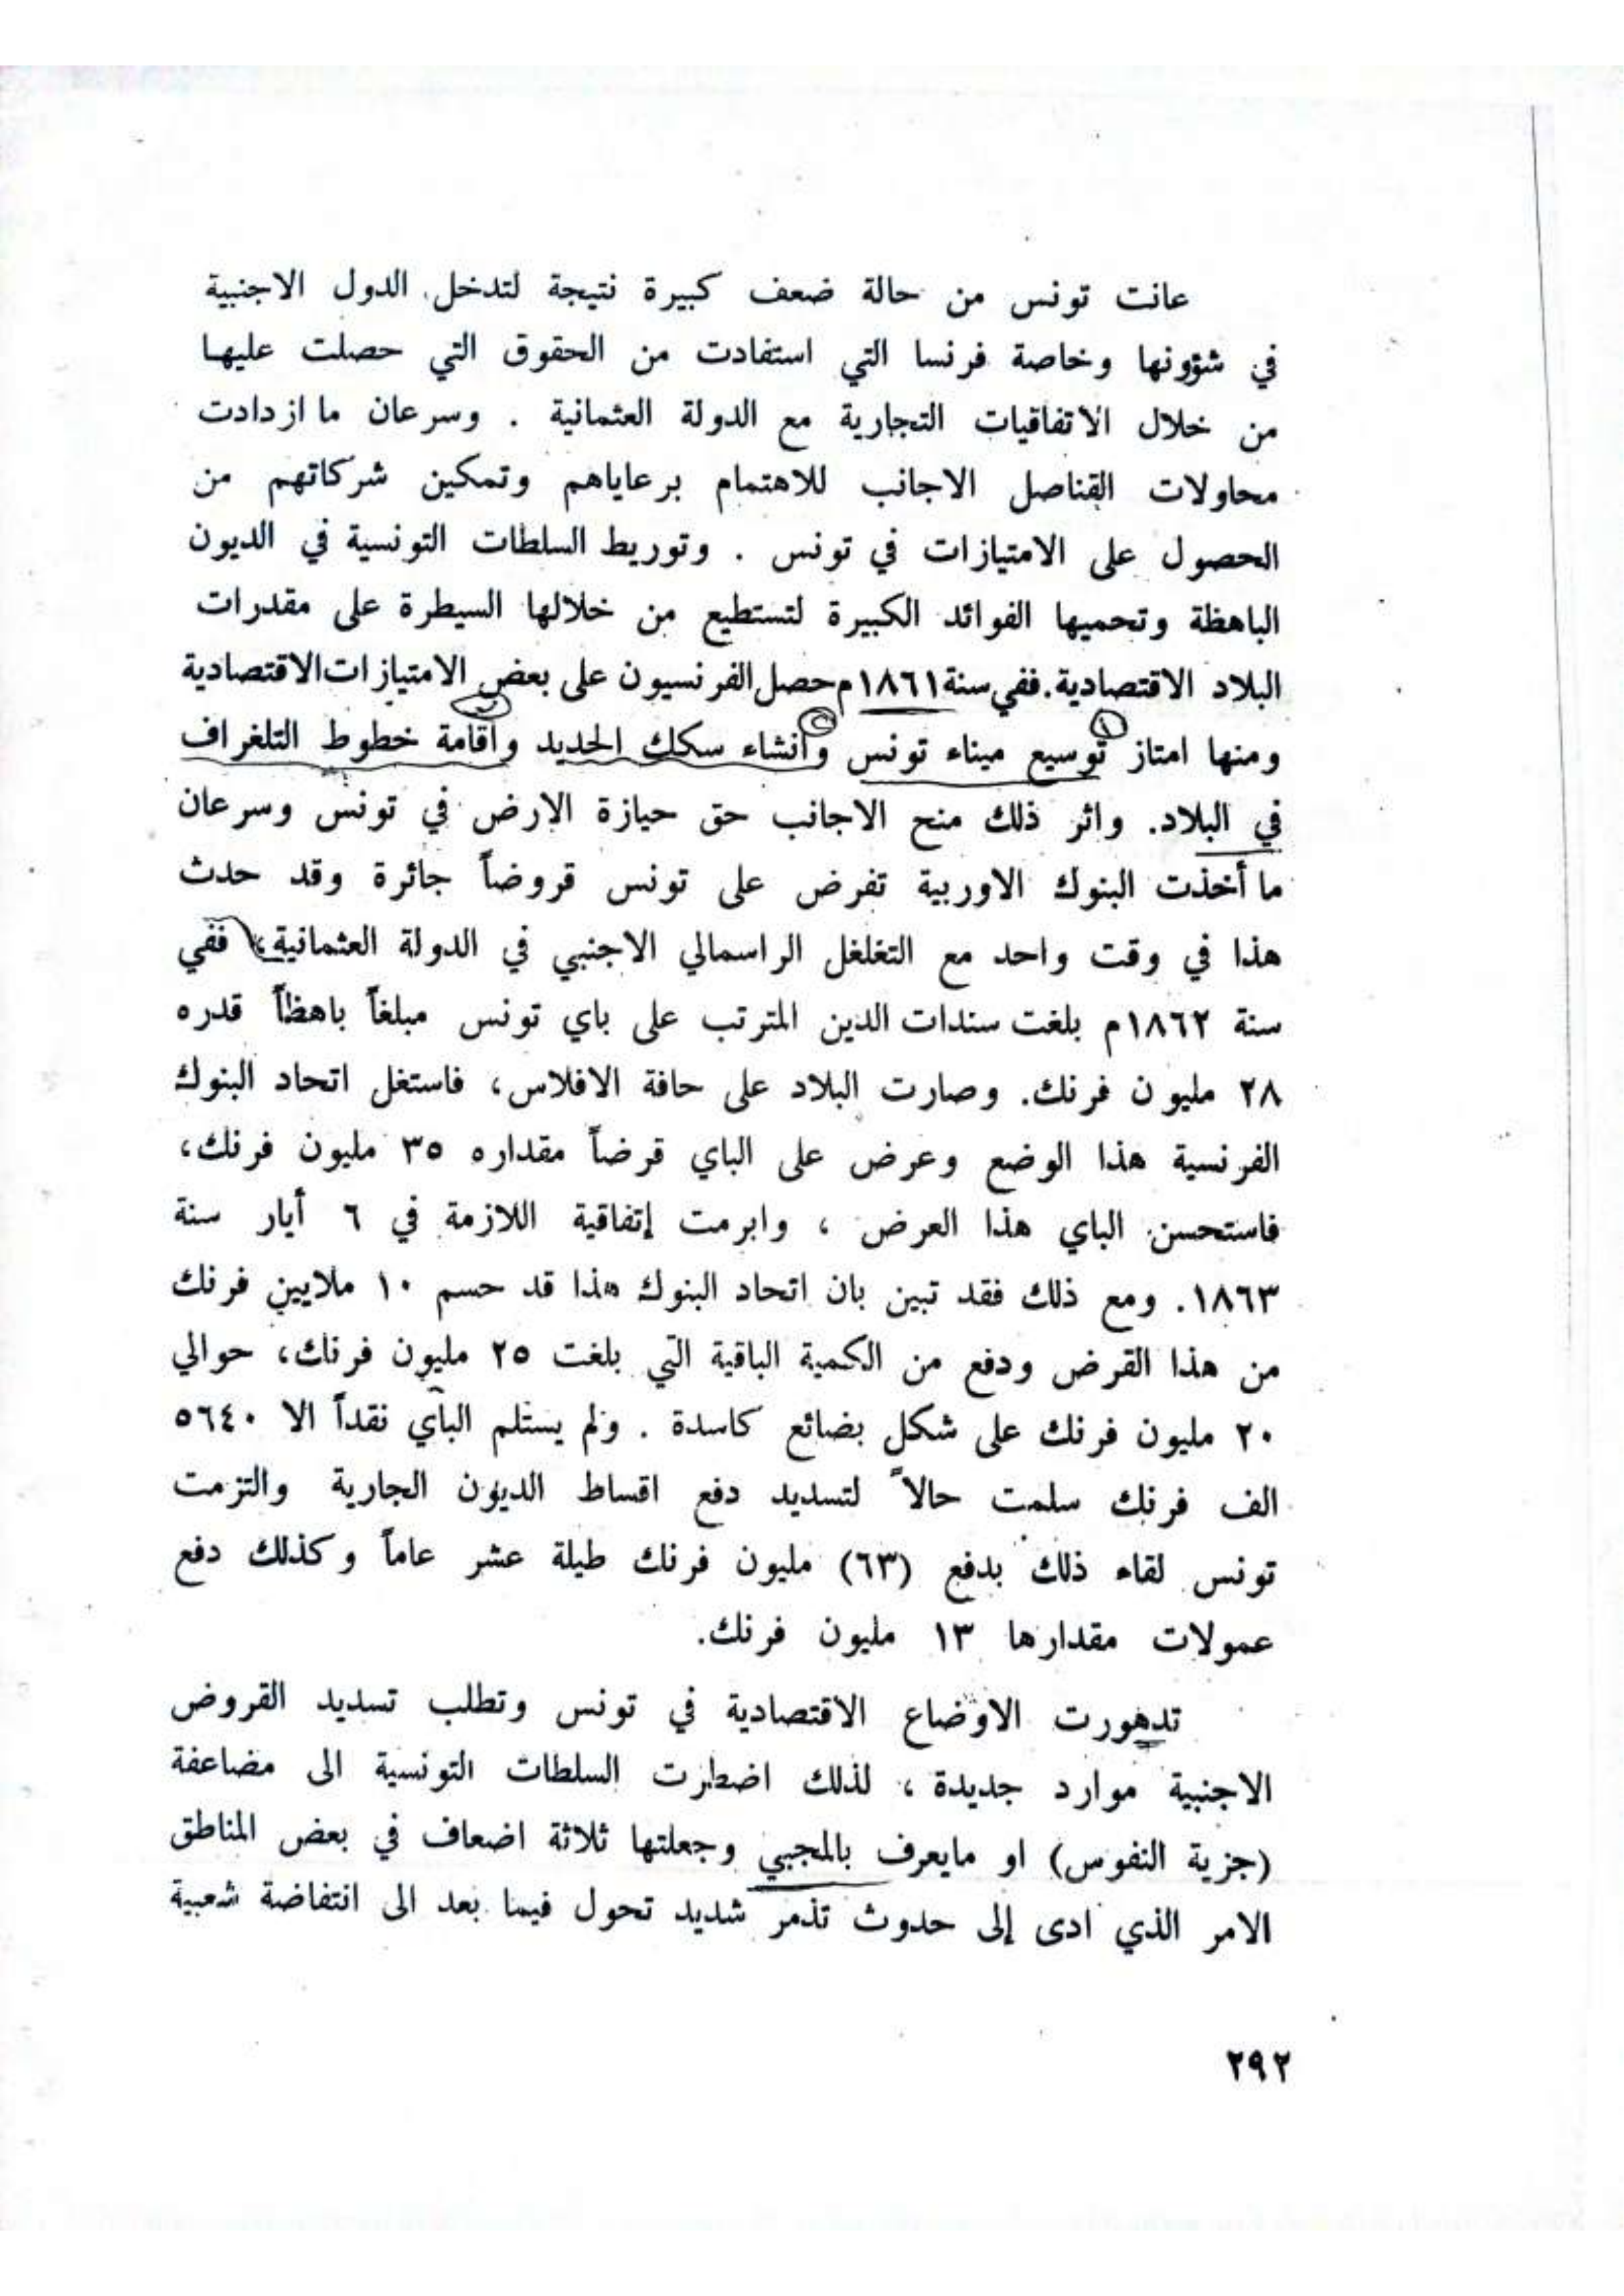 عانت تونس من حالة ضعف كبيرة نتيجة لتدخل الدول الاجنبية
في شؤونها وخاصة فرنسا التي استفادت من الحقوق التي حصلت عليها
من خلال الاتفاقيات التجارية مع الدولة العثمانية . وسرعان ما ازدادت
محاولات القناصل الاجانب للاهتمام برعاياهم وتمكين شركاتهم من
الحصول على الامتيازات في تونس . وتوريط السلطات التونسية في الديون
الباهظة وتحميها الفوائد الكبيرة لتستطيع من خلالها السيطرة على مقدرات
البلاد الاقتصادية. ففي سنة ١٨٦١م حصل الفرنسيون على بعض الامتيازات الاقتصادية
ومنها امتاز توسيع ميناء تونس وانشاء سكك الحديد واقامة خطوط التلغراف
في البلاد. واثر ذلك منح الاجانب حق حيازة الارض في تونس وسرعان
ما أخذت البنوك الاوربية تفرض على تونس قروضاً جائرة وقد حدث
هذا في وقت واحد مع التغلغل الراسمالي الاجنبي في الدولة العثمانية، ففي
سنة ١٨٦٢م بلغت سندات الدين المترتب على باي تونس مبلغاً باهظاً قدره
٢٨ مليون فرنك. وصارت البلاد على حافة الافلاس، فاستغل اتحاد البنوك
الفرنسية هذا الوضع وعرض على الباي قرضاً مقداره ٣٥ مليون فرنك،
فاستحسن الباي هذا العرض ، وابرمت إتفاقية اللازمة في ٦ أيار سنة
١٨٦٣. ومع ذلك فقد تبين بان اتحاد البنوك هذا قد حسم ١٠ ملايين فرنك
من هذا القرض ودفع من الكمية الباقية التي بلغت ٢٥ مليون فرنك، حوالي
٢٠ مليون فرنك على شكل بضائع كاسدة . ولم يستلم الباي نقداً الا ٥٦٤٠
الف فرنك سلمت حالاً لتسديد دفع اقساط الديون الجارية والتزمت
تونس لقاء ذلك بدفع (٦٣) مليون فرنك طيلة عشر عاماً وكذلك دفع
عمولات مقدارها ١٣ مليون فرنك.
تدهورت الاوضاع الاقتصادية في تونس وتطلب تسديد القروض
الاجنبية موارد جديدة ، لذلك اضطرت السلطات التونسية الى مضاعفة
(جزية النفوس) او مايعرف بالمجبي وجعلتها ثلاثة اضعاف في بعض المناطق
الامر الذي ادى إلى حدوث تذمر شديد تحول فيما بعد الى انتفاضة شعبية
٢٩٢